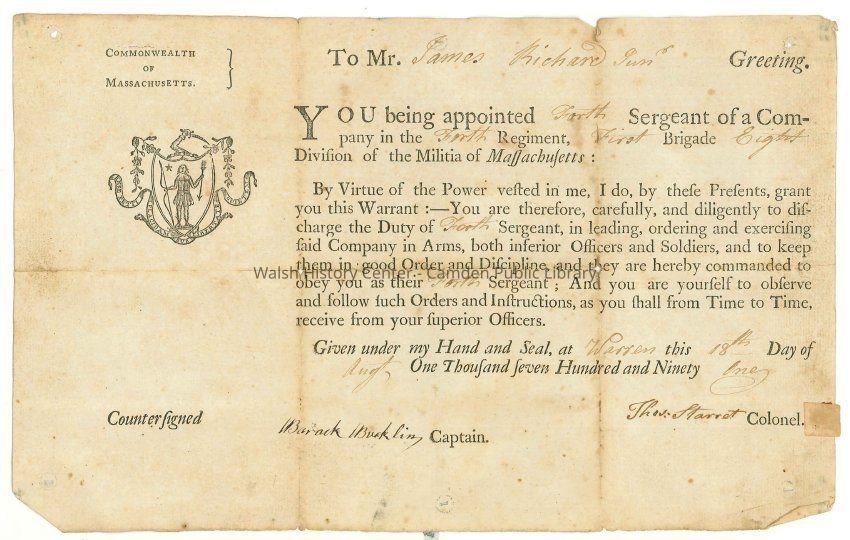 COMMONWEALTH
OF
MASSACHUSETTS.
To Mr. James Richard Junr Greeting.
YOU being appointed Forth Sergeant of a Com-
pany in the Forth Regiment, First Brigade Eight
Division of the Militia of Maſſachuſetts :
By Virtue of the Power veſted in me, I do, by theſe Preſents, grant
you this Warrant :—You are therefore, carefully, and diligently to diſ-
charge the Duty of Forth Sergeant, in leading, ordering and exerciſing
ſaid Company in Arms, both inferior Officers and Soldiers, and to keep
them in good Order and Diſcipline, and they are hereby commanded to
Walsh History Center - Camden Public Library
obey you as their Forth Sergeant ; And you are yourſelf to obſerve
and follow ſuch Orders and Inſtructions, as you ſhall from Time to Time,
receive from your ſuperior Officers.
Given under my Hand and Seal, at Warren this 18th Day of
Augt One Thouſand ſeven Hundred and Ninety One
Counterſigned
Thos. Starret Colonel.
Barack Bucklin, Captain.